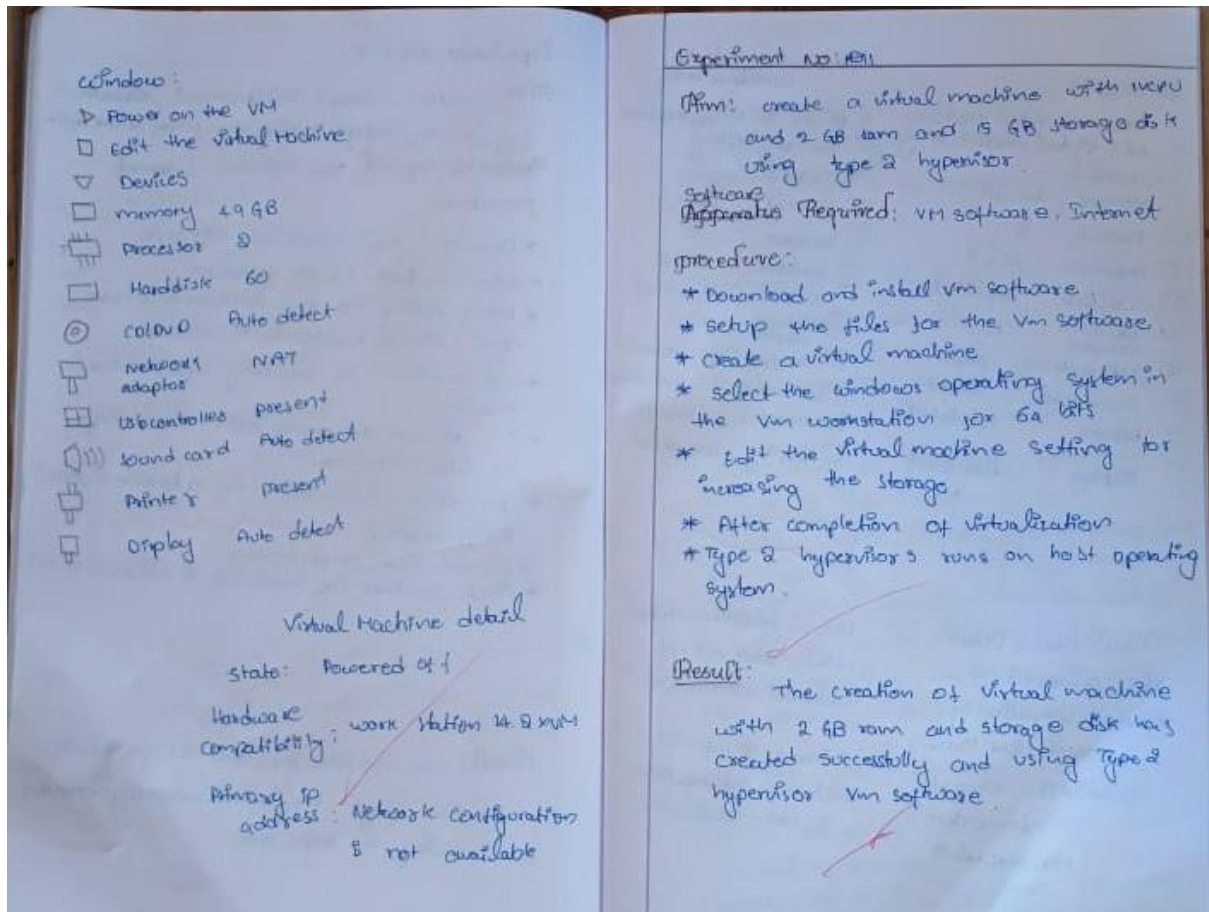 Window:
Power on the VM
Edit the Virtual Machine
Devices
memory 4.9 GB
processor 2
Harddisk 60
CD/DVD Auto detect
Network NAT
adaptor
Usb controller present
sound card Auto detect
Printer present
Display Auto detect
Virtual Machine detail
State: Powered off
Hardware
compatibility: work station 14.2 VM
Primary ip
address: Network configuration
is not available
Experiment No:
Aim: create a virtual machine with 1vCPU
and 2 GB ram and 15 GB storage disk
using type 2 hypervisor.
Software
Apparatus Required: VM software, Internet
procedure:
* Download and install vm software.
* setup the files for the vm software.
* create a virtual machine
* select the windows operating system in
the vm workstation for 64 bits
* Edit the virtual machine setting for
increasing the storage.
* After completion of virtualization
* Type 2 hypervisors runs on host operating
system.
Result:
The creation of virtual machine
with 2 GB ram and storage disk has
created successfully and using Type 2
hypervisor vm software.